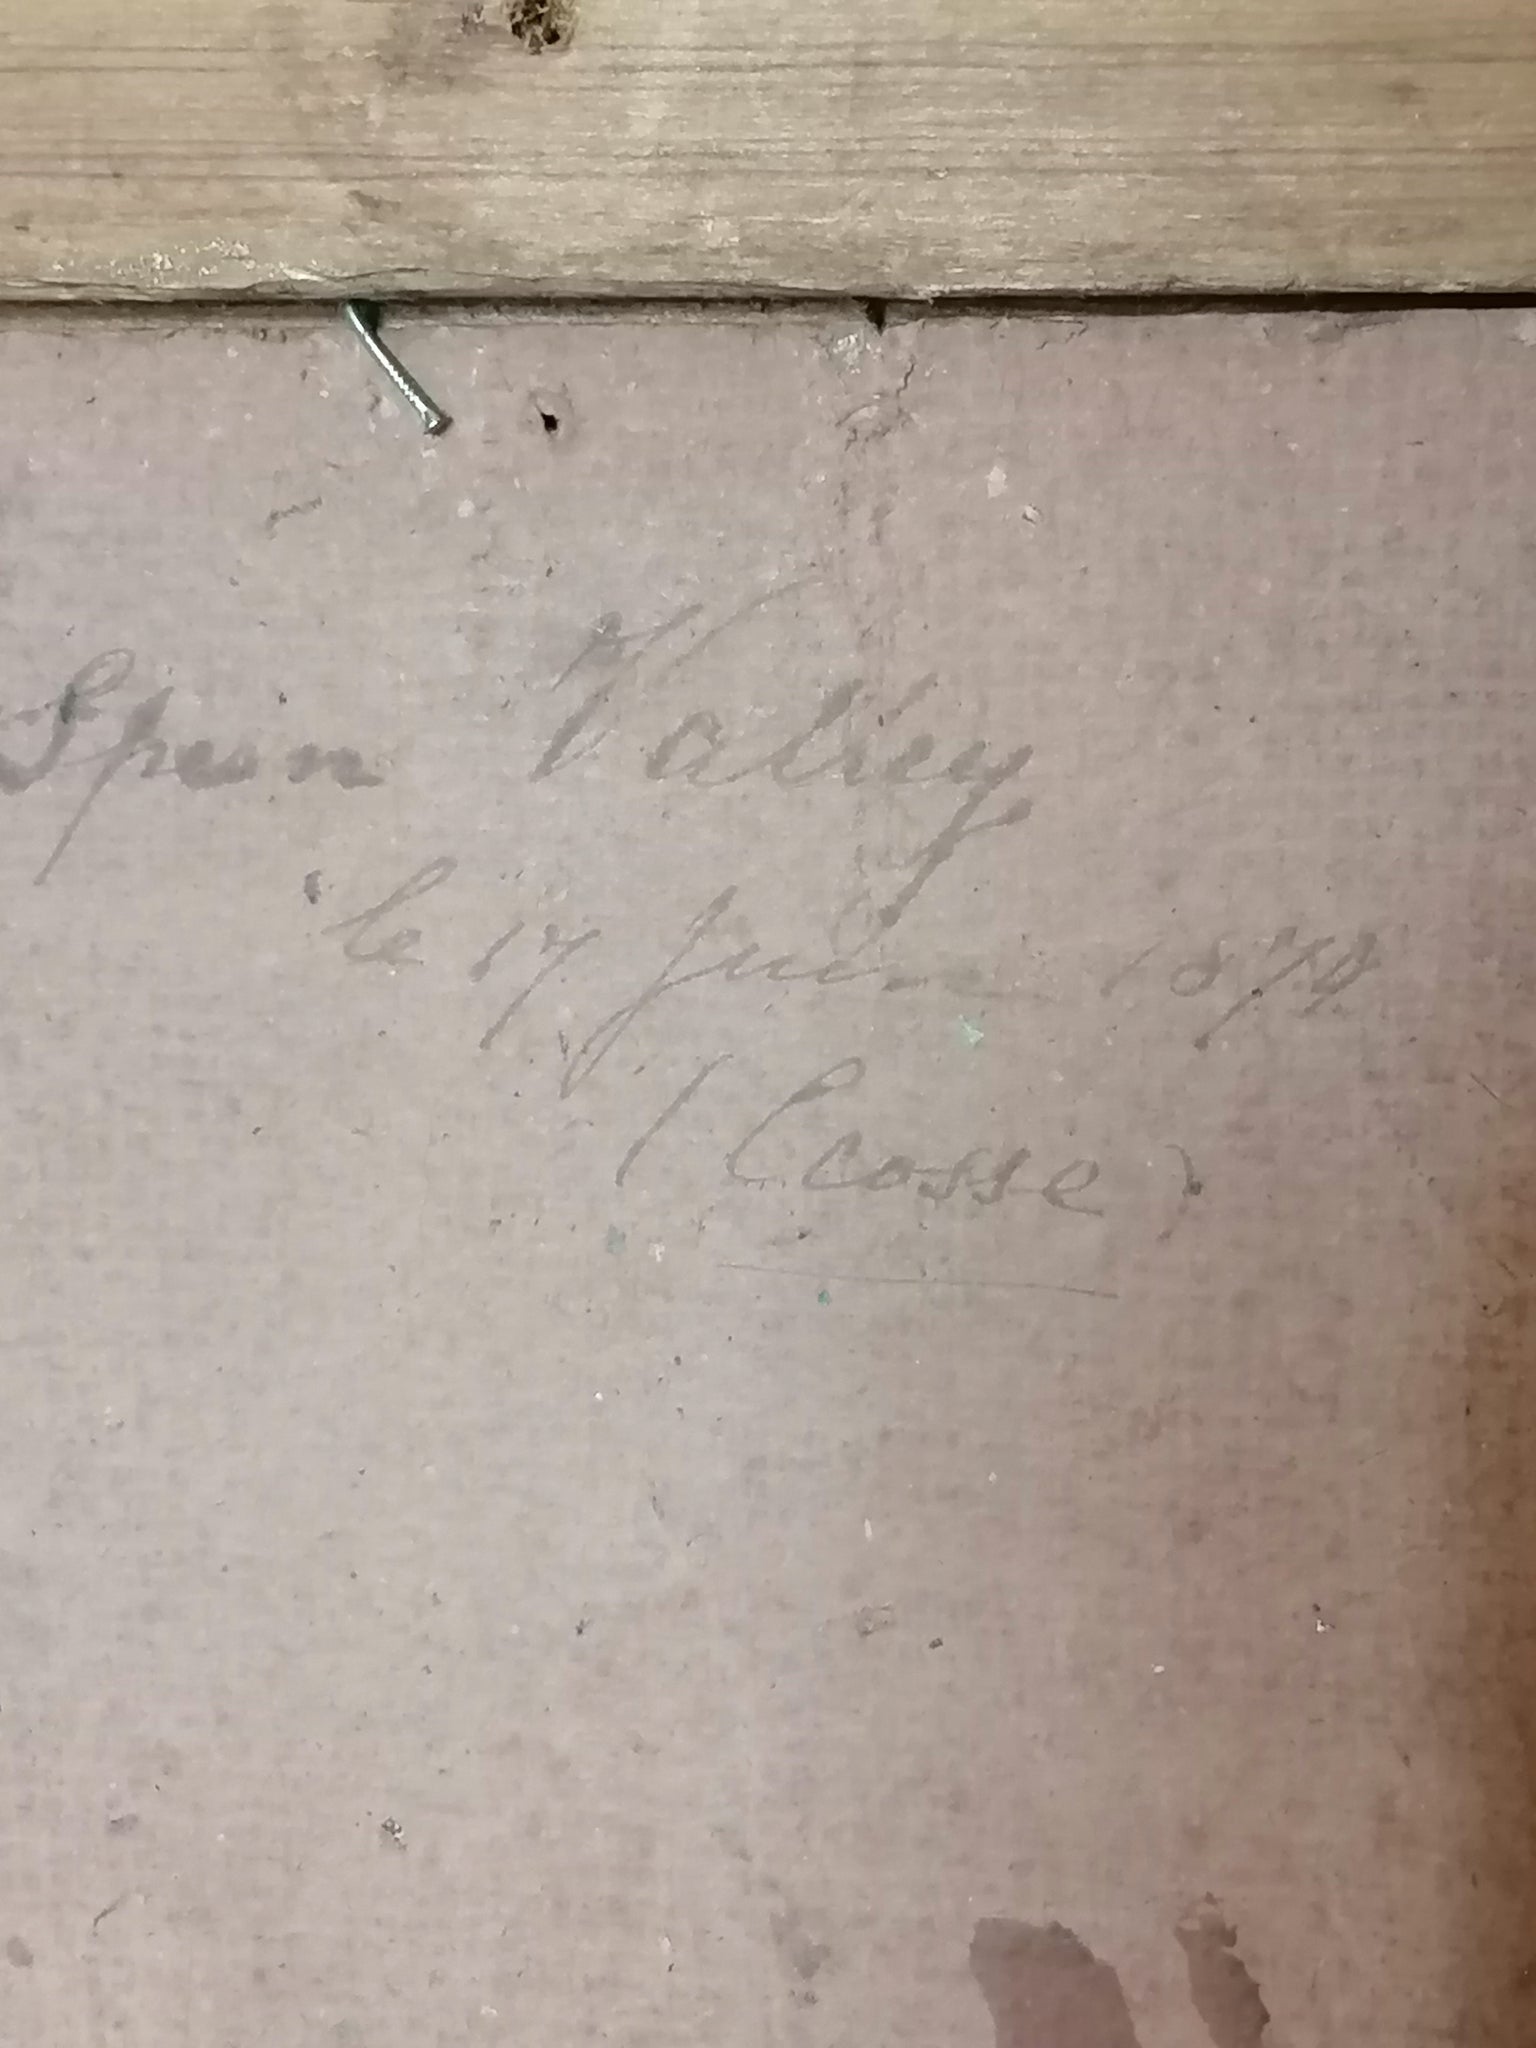 Spean Valley
le 17 Juin 1879
(Ecosse)